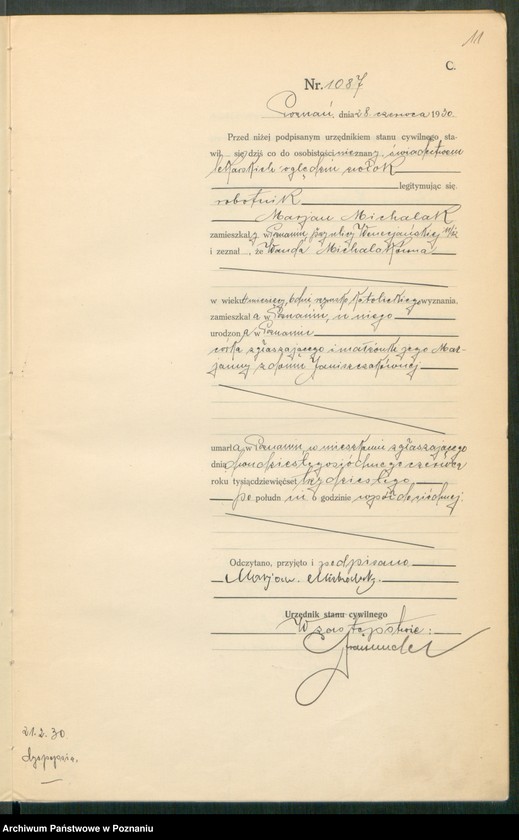 11
C.
Nr. 1087
Poznań, dnia 28 czerwca 1930.
Przed niżej podpisanym urzędnikiem stanu cywilnego sta-
wił się dziś co do osobistości nieznany, świadectwem
lekarskich oględzin zwłok
legitymując się
robotnik
Marjan Michalak
zamieszkały w Poznaniu przy ulicy Wenecjańskiej
i zeznał, że Wanda Michalakówna
w wieku 4 miesięcy, 6 dni rzymsko katolickiego wyznania.
zamieszkała w Poznaniu, u niego
urodzona w Poznaniu
córka zgłaszającego i małżonki jego Mar-
janny z domu Janiszczakównej
umarła w Poznaniu w mieszkaniu zgłaszającego
dnia dwudziestego siódmego czerwca
roku tysiącdziewięćset trzydziestego
po południu o godzinie wpół do siódmej.
Odczytano, przyjęto i podpisano
Marjan Michalak
Urzędnik stanu cywilnego
W zastępstwie:
21.2.30
dyspepsia.
Archiwum Państwowe w Poznaniu